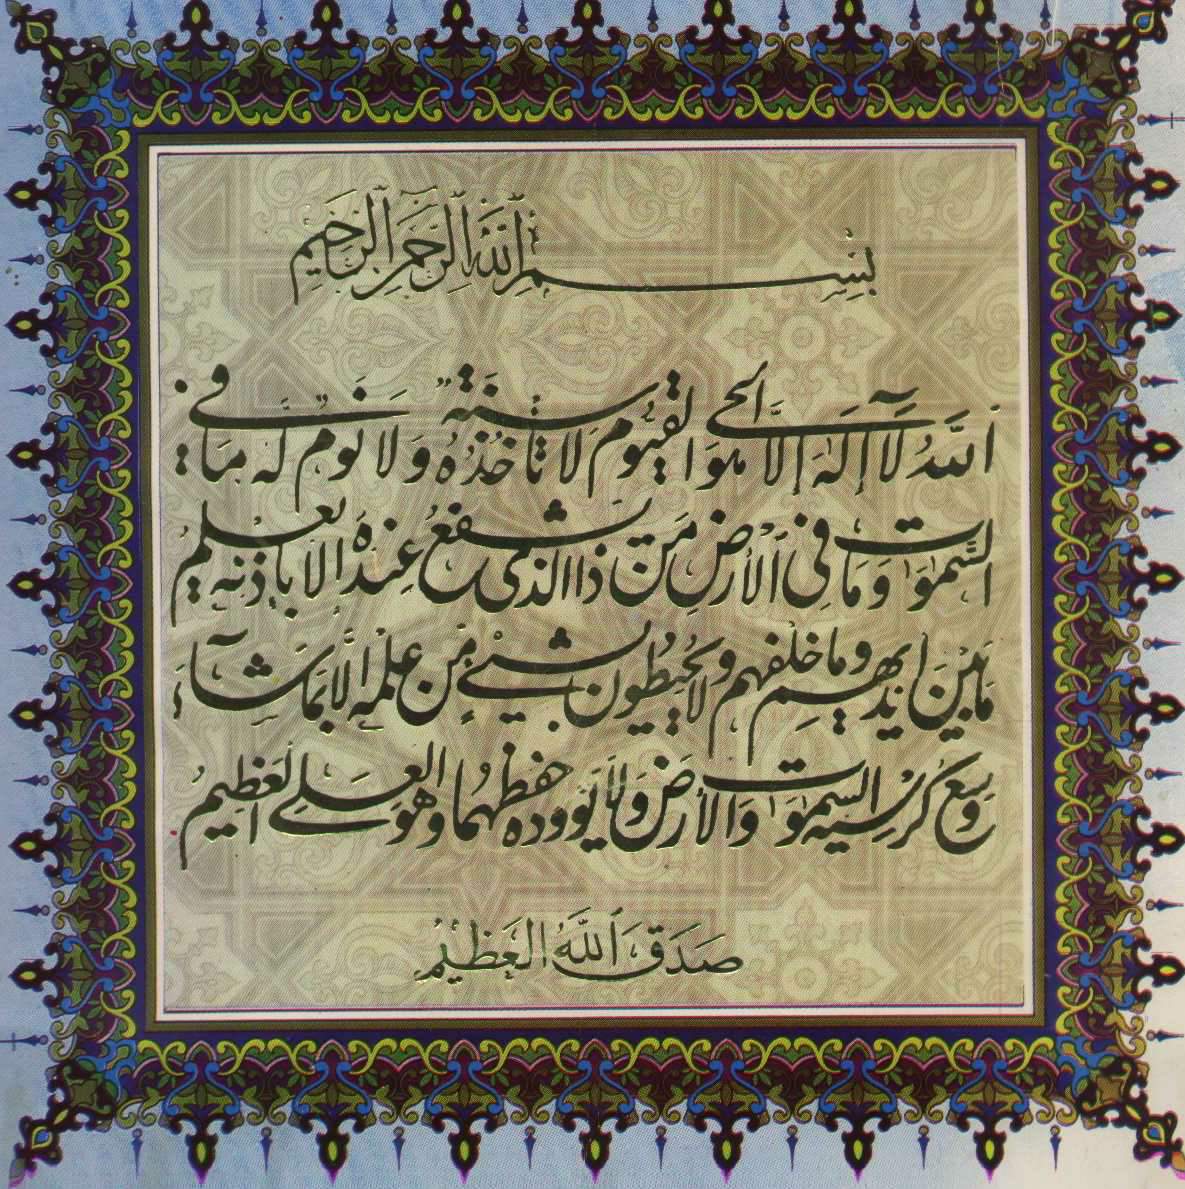 بِسْمِ اللَّهِ الرَّحْمَنِ الرَّحِيمِ
اَللَّهُ لَآ اِلَهَ اِلَّا هُوَ الْحَيُّ الْقَيُّومُ لَا تَأْخُذُهُ سِنَةٌ وَلَا نَوْمٌ لَهُ مَا فِي
السَّمٰوَاتِ وَمَا فِي الْأَرْضِ مَنْ ذَا الَّذِي يَشْفَعُ عِنْدَهُ إِلَّا بِإِذْنِهِ يَعْلَمُ
مَا بَيْنَ اَيْدِيهِمْ وَمَا خَلْفَهُمْ وَلَا يُحِيطُونَ بِشَيْءٍ مِنْ عِلْمِهِ إِلَّا بِمَا شَآءَ
وَسِعَ كُرْسِيُّهُ السَّمٰوَاتِ وَالْأَرْضَ وَلَا يَؤُودُهُ حِفْظُهُمَا وَهُوَ الْعَلِيُّ الْعَظِيمُ
صَدَقَ اللَّهُ الْعَظِيمْ